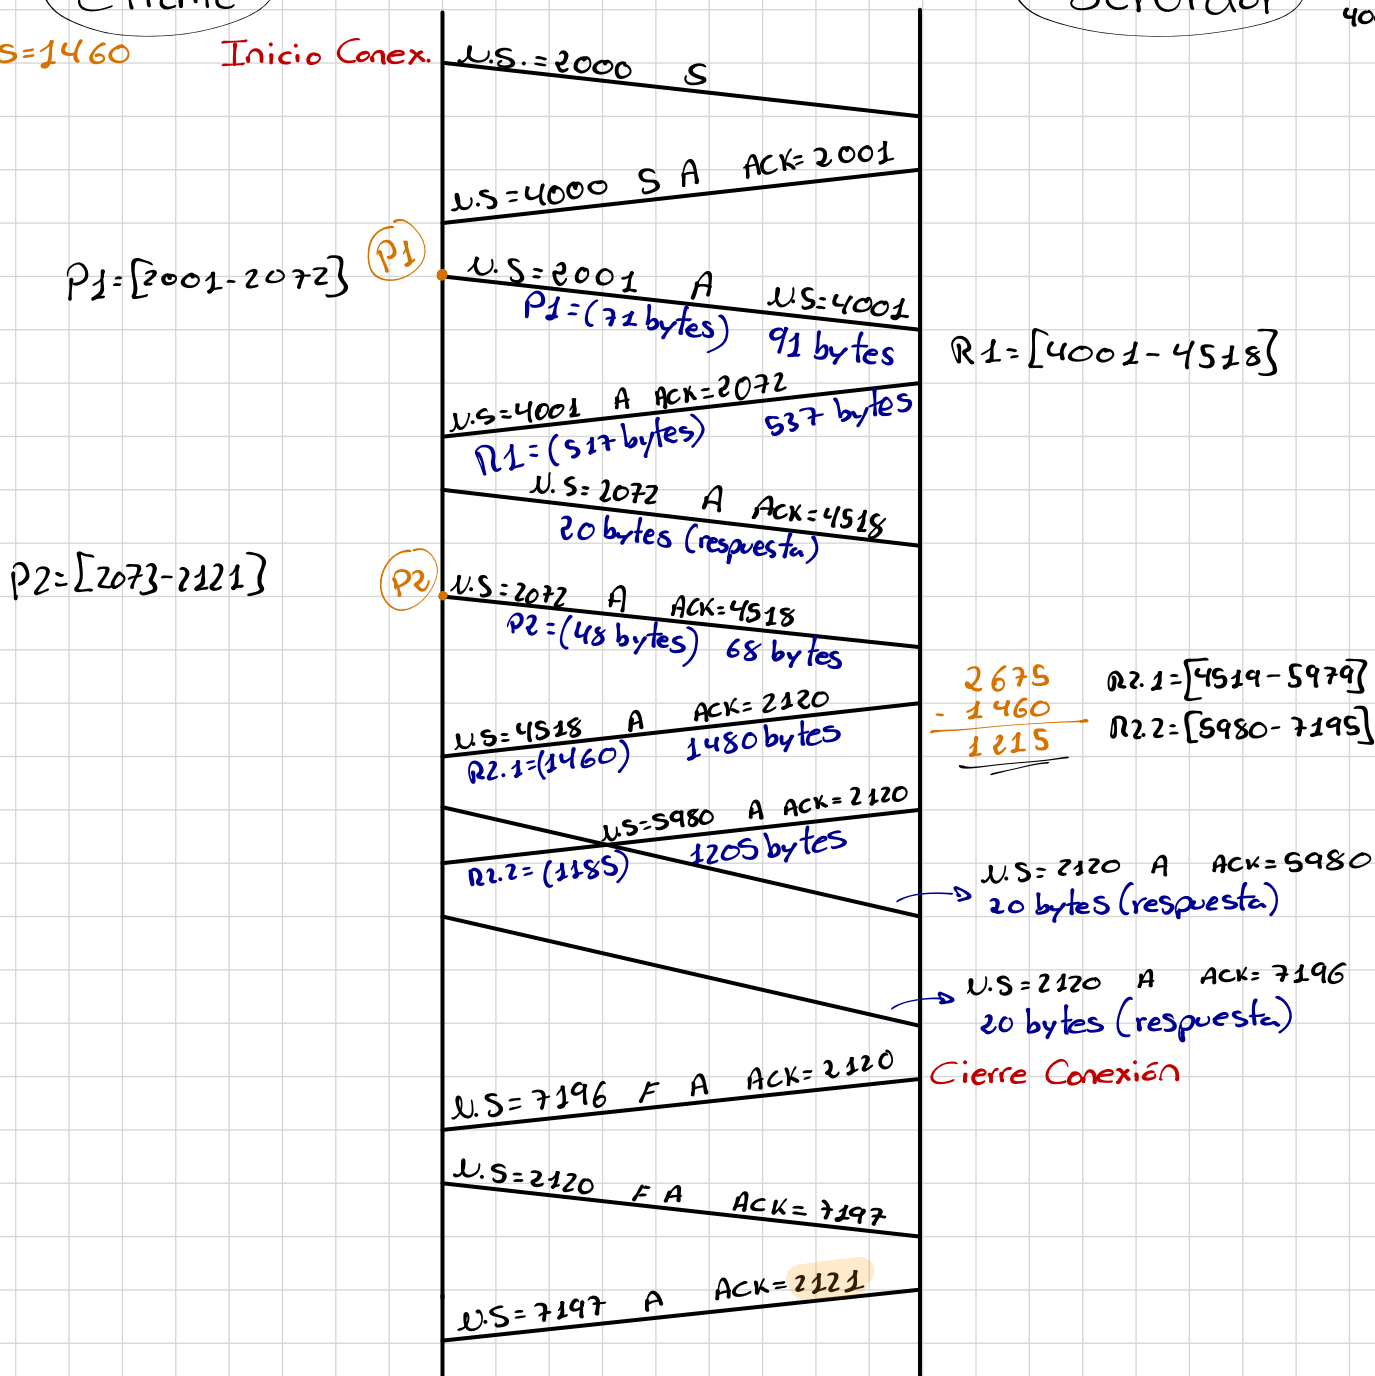 Cliente
Servidor
40
S=1460
Inicio Conex.
N.S.=2000 S
N.S=4000 S A ACK=2001
P1
P1=[2001-2072]
N.S=2001 A N.S=4001
P1=(71 bytes) 91 bytes
R1=[4001-4518]
N.S=4001 A ACK=2072
R1=(517 bytes) 537 bytes
N.S=2072 A ACK=4518
20 bytes (respuesta)
P2=[2073-2121]
P2
N.S=2072 A ACK=4518
P2=(48 bytes) 68 bytes
2675
- 1460
1215
R2.1=[4519-5979]
R2.2=[5980-7195]
N.S=4518 A ACK=2120
R2.1=(1460) 1480 bytes
N.S=5980 A ACK=2120
R2.2=(1185) 1205 bytes
N.S=2120 A ACK=5980
20 bytes (respuesta)
N.S=2120 A ACK=7196
20 bytes (respuesta)
Cierre Conexión
N.S=7196 F A ACK=2120
N.S=2120 F A ACK=7197
N.S=7197 A ACK=2121